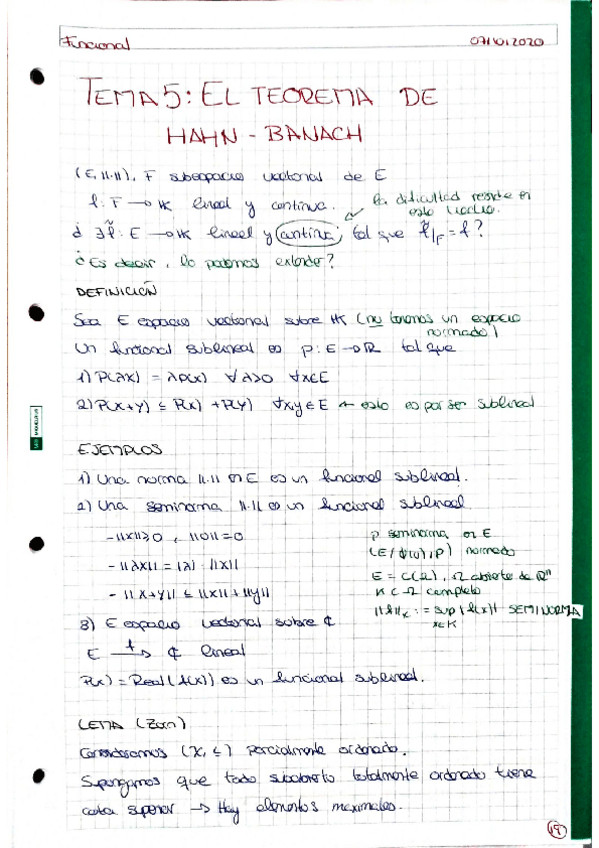 Funcional 07/10/2020
TEMA 5: EL TEOREMA DE
HAHN - BANACH
(E, ||·||), F subespacio vectorial de E
f: F → IK lineal y continua. la dificultad reside en
este hecho.
¿ ∃ f̃ : E → IK lineal y continua, tal que f̃/F = f?
¿Es decir, lo podemos extender?
DEFINICIÓN
Sea E espacio vectorial sobre IK (no tenemos un espacio
normado)
Un funcional sublineal es p: E → IR tal que
1) P(λx) = λp(x) ∀λ>0 ∀x∈E
2) P(x+y) ≤ P(x) + P(y) ∀x,y ∈ E ← esto es por ser sublineal
EJEMPLOS
1) Una norma ||·|| en E es un funcional sublineal.
2) Una seminorma ||·|| es un funcional sublineal
- ||x|| ≥ 0 , ||0|| = 0
- ||λx|| = |λ| · ||x||
- ||x+y|| ≤ ||x|| + ||y||
p seminorma en E
(E/ (0), p) normado
E = C(Ω), Ω abierto de IRⁿ
K ⊂ Ω compacto
||f||K := sup |f(x)| SEMINORMA
x∈K
3) E espacio vectorial sobre ₵
E →f ₵ lineal
P(x) = Real(f(x)) es un funcional sublineal.
LEMA (Zorn)
Consideramos (X, ≤) parcialmente ordenado.
Supongamos que todo subconjunto totalmente ordenado tiene
cota superior → Hay elementos maximales.